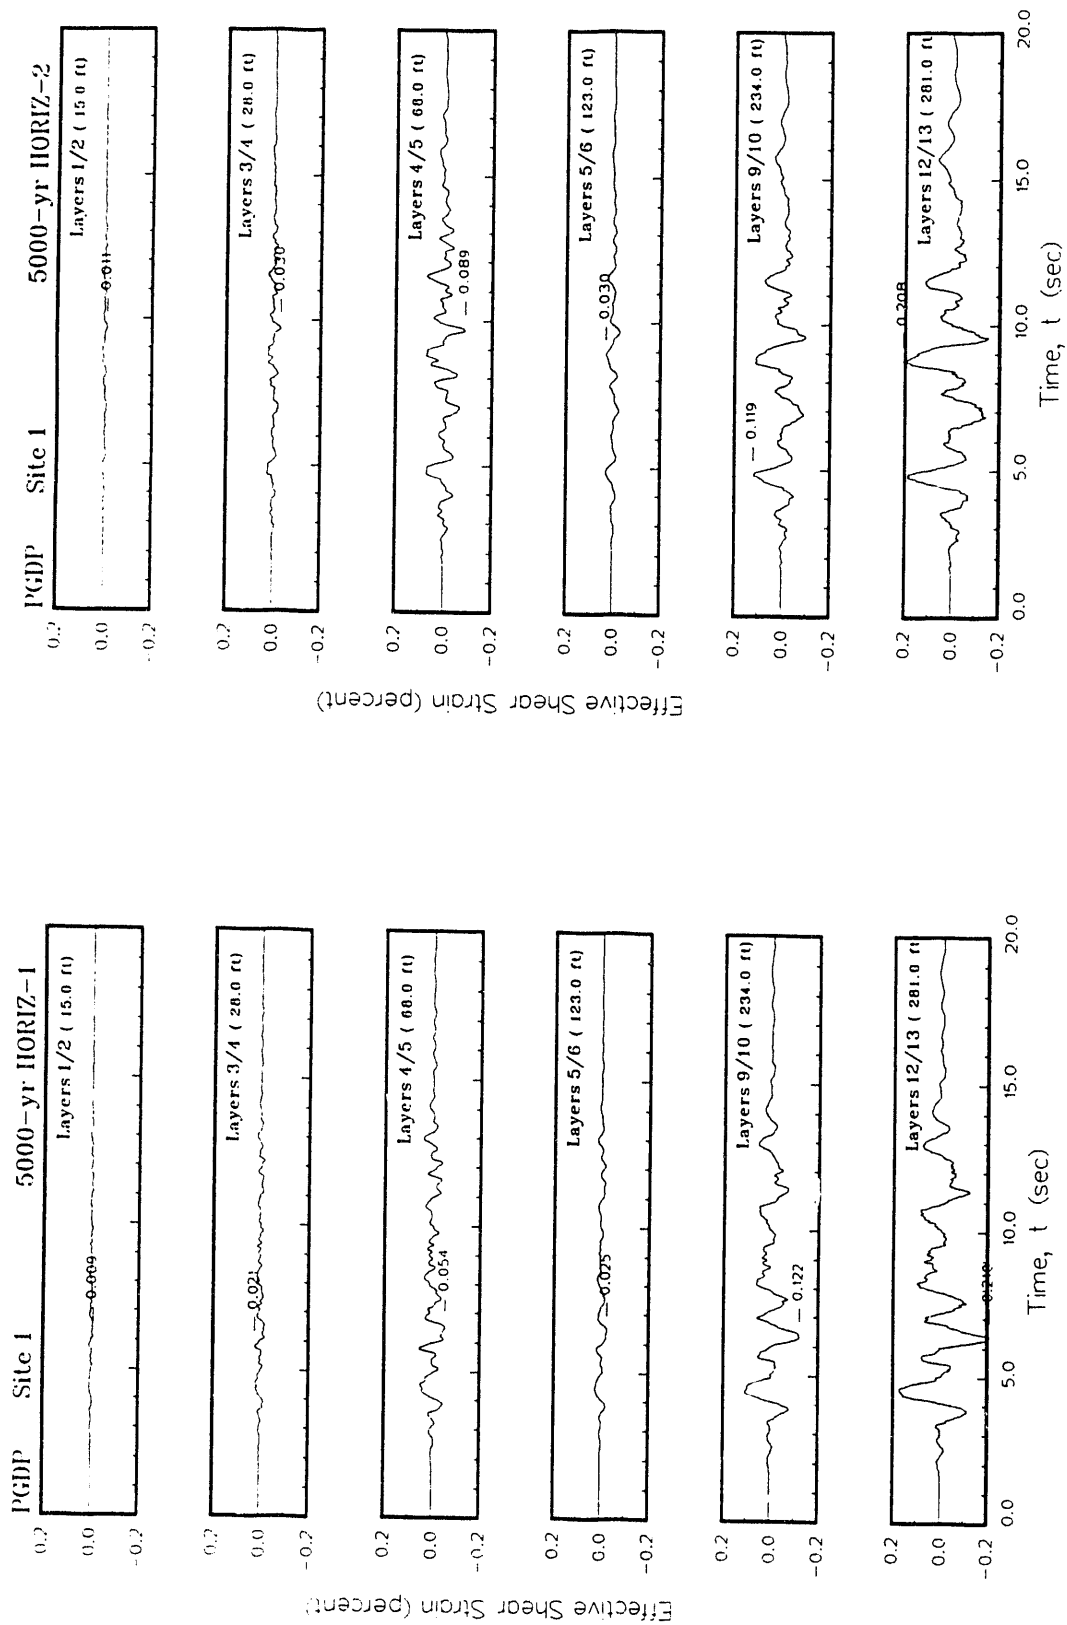 PGDP Site 1 5000-yr HORIZ-1
Layers 1/2 ( 15.0 ft)
0.2
0.0
-0.2
0.009
Layers 3/4 ( 28.0 ft)
0.2
0.0
-0.2
0.021
Layers 4/5 ( 68.0 ft)
0.2
0.0
-0.2
0.054
Layers 5/6 ( 123.0 ft)
0.2
0.0
-0.2
0.025
Layers 9/10 ( 234.0 ft)
0.2
0.0
-0.2
0.122
Layers 12/13 ( 281.0 ft
0.2
0.0
-0.2
0.0 5.0 10.0 15.0 20.0
Time, t (sec)
Effective Shear Strain (percent)
PGDP Site 1 5000-yr HORIZ-2
Layers 1/2 ( 15.0 ft)
0.2
0.0
-0.2
0.011
Layers 3/4 ( 28.0 ft)
0.2
0.0
-0.2
0.030
Layers 4/5 ( 68.0 ft)
0.2
0.0
-0.2
0.089
Layers 5/6 ( 123.0 ft)
0.2
0.0
-0.2
0.030
Layers 9/10 ( 234.0 ft)
0.2
0.0
-0.2
0.119
Layers 12/13 ( 281.0 ft
0.2
0.0
-0.2
0.208
0.0 5.0 10.0 15.0 20.0
Time, t (sec)
Effective Shear Strain (percent)